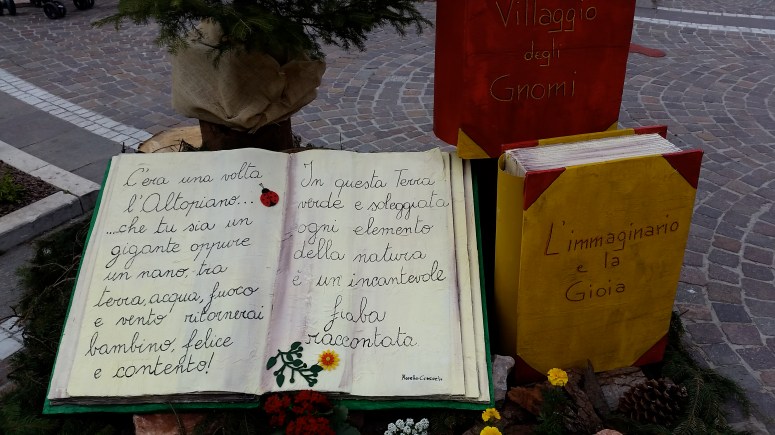 C'era una volta
l'Altopiano...
...che tu sia un
gigante oppure
un nano, tra
terra, acqua, fuoco
e vento ritornerai
bambino, felice
e contento!
In questa Terra
verde e soleggiata
ogni elemento
della natura
è un'incantevole
fiaba
raccontata
Villaggio
degli
Gnomi
L'immaginario
e la
Gioia